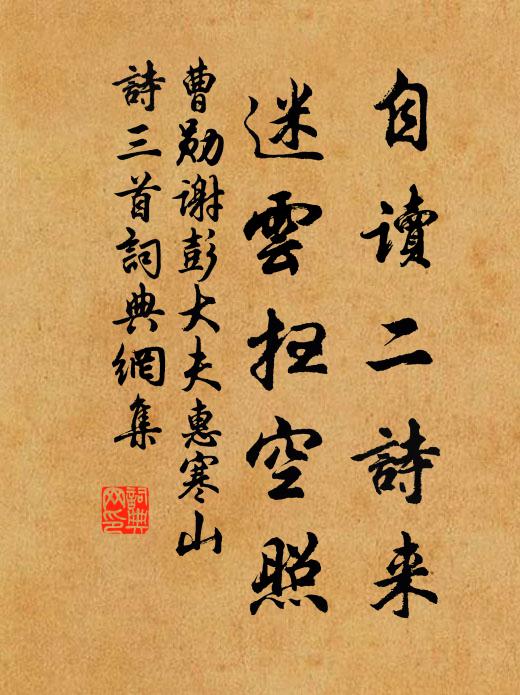 自读二詩来
迷雲扫空照
曹勋谢彭大夫惠寒山
詩三首詞典網集
詞典
网印